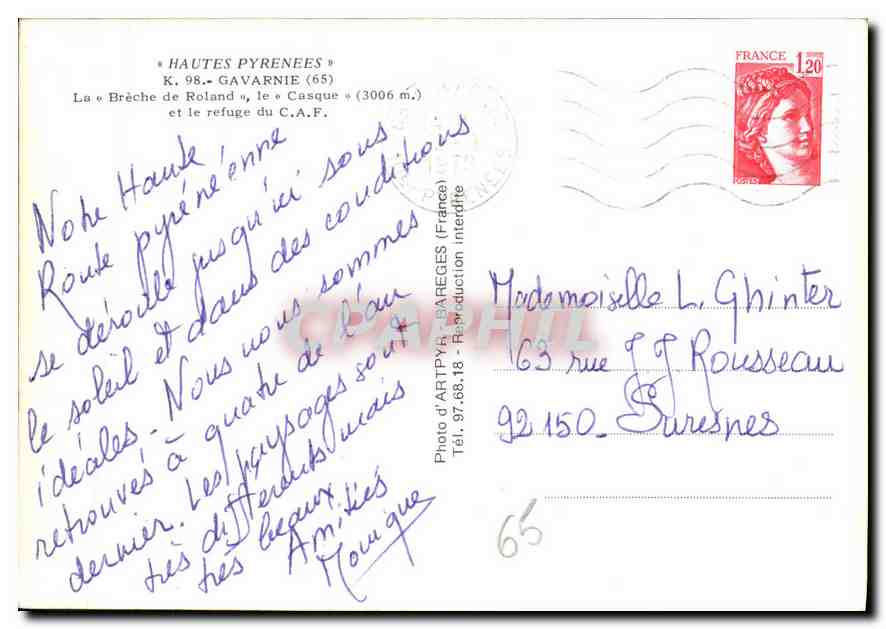 « HAUTES PYRENEES »
K. 98.- GAVARNIE (65)
La « Brèche de Roland », le « Casque » (3006 m.)
et le refuge du C.A.F.
Notre Haute
Route pyrénéenne
se déroule jusqu'ici sous
le soleil et dans des conditions
idéales - Nous nous sommes
retrouvés à quatre de l'an
dernier. Les paysages sont
très différents mais
très beaux.
Amitiés
Monique
Photo d'ARTPYR - BAREGES (France)
Tél. 97.68.18 - Reproduction interdite
CPAPHIL
FRANCE 1,20
PYRENEES
Mademoiselle L. Ghinter
63 rue J J Rousseau
92150 - Suresnes
65